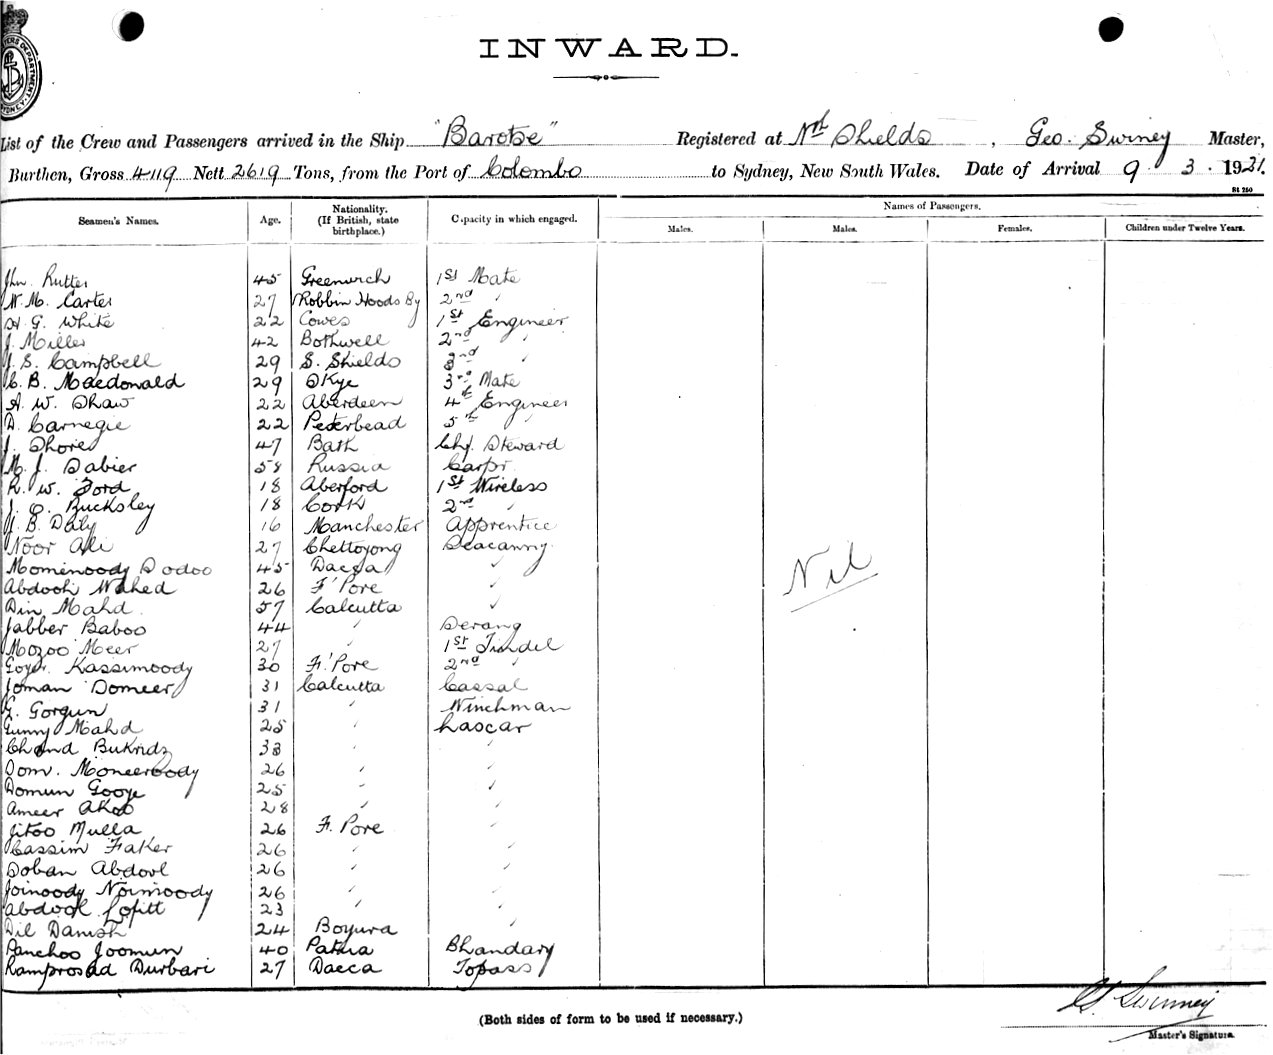 INWARD.
List of the Crew and Passengers arrived in the Ship "Barotse" Registered at Nth Shields, Geo. Swiney Master,
Burthen, Gross 4119 Nett 2619 Tons, from the Port of Colombo to Sydney, New South Wales. Date of Arrival 9 3. 1921.
St 250
Seamen's Names. Age. Nationality. (If British, state birthplace.) Capacity in which engaged. Names of Passengers.
Males. Males. Females. Children under Twelve Years.
Jhn. Rutter 45 Greenwich 1st Mate
W. M. Carter 27 Robbin Hoods By 2nd "
H G. White 22 Cowes 1st Engineer
J. Miller 42 Bothwell 2nd "
J. S. Campbell 29 S. Shields 3rd "
C. B. Macdonald 29 Skye 3rd Mate
A. W. Shaw 22 Aberdeen 4th Engineer
D. Carnegie 22 Peterhead 5th "
J. Shore 47 Bath Chf. Steward
M. J. Sabier 58 Russia Carpr.
R. W. Ford 18 Aberford 1st Wireless
J. C. Bucksley 18 Cork 2nd "
J. B. Daly 16 Manchester Apprentice
Noor Ali 27 Chettoyong Seacunny
Momenoody Dodoo 45 Dacca "
Abdooh Wahed 26 F'Pore "
Din Mahd. 57 Calcutta "
Jabber Baboo 44 " Serang
Mozoo Meer 27 " 1st Tindel
Goyer Kassimoody 30 F.'Pore 2nd "
Joman Domeer 31 Calcutta Cassal
G. Gorgun 31 " Winchman
Gunny Mahd 25 " Lascar
Chand Bukridz 33 " "
Dom. Moneeroody 26 " "
Domun Gooje 25 " "
Ameer Akob 28 " "
Jitoo Mulla 26 F. Pore "
Cassim Faker 26 " "
Soban Abdool 26 " "
Joinoody Noimoody 26 " "
Abdool Lofitt 23 " "
Dil Danish 24 Boyura "
Panchoo Joomun 40 Patna Bhandary
Ramprosad Durbari 27 Dacca Topass
Nil
G. Swinney
Master's Signature.
(Both sides of form to be used if necessary.)